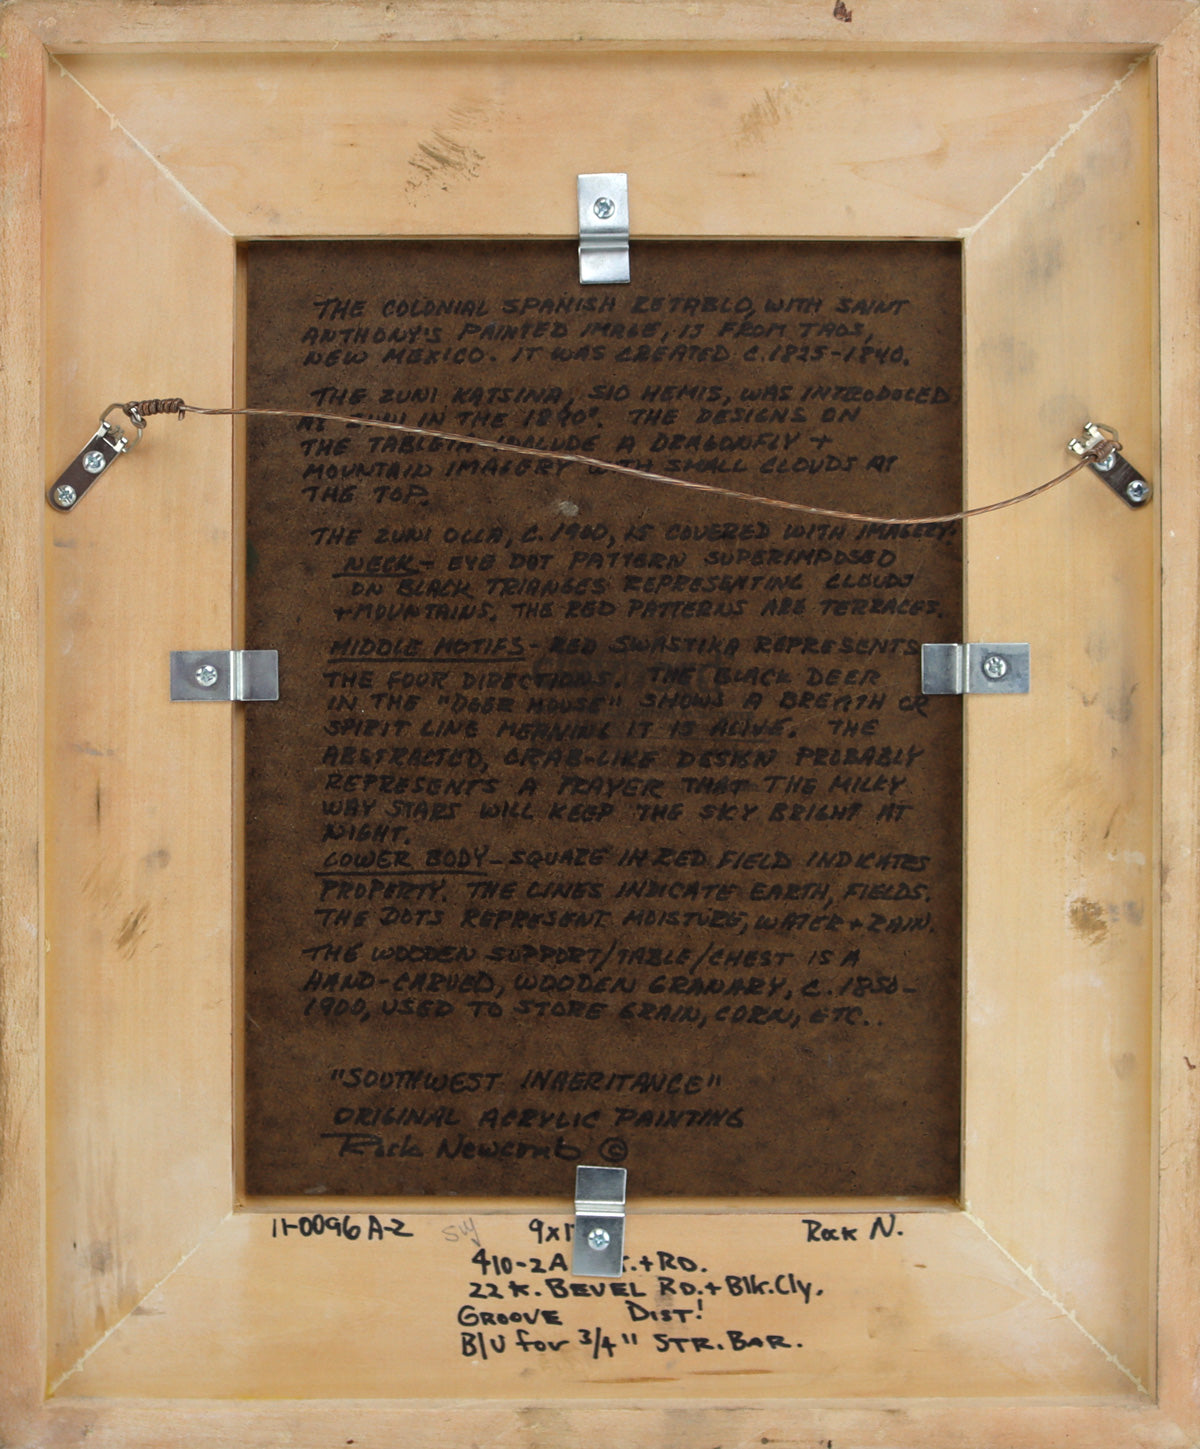 THE COLONIAL SPANISH RETABLO, WITH SAINT
ANTHONY'S PAINTED IMAGE, IS FROM TAOS,
NEW MEXICO. IT WAS CREATED C.1825-1840.
THE ZUNI KATSINA, SIO HEMIS, WAS INTRODUCED
AT ZUNI IN THE 1890S. THE DESIGNS ON
THE TABLETA INCLUDE A DRAGONFLY +
MOUNTAIN IMAGERY WITH SMALL CLOUDS AT
THE TOP.
THE ZUNI OLLA, C.1900, IS COVERED WITH IMAGERY.
NECK - EYE DOT PATTERN SUPERIMPOSED
ON BLACK TRIANGES REPRESENTING CLOUDS
+ MOUNTAINS. THE RED PATTERNS ARE TERRACES.
MIDDLE MOTIFS - RED SWASTIKA REPRESENTS
THE FOUR DIRECTIONS. THE BLACK DEER
IN THE "DEER HOUSE" SHOWS A BREATH OR
SPIRIT LINE MEANING IT IS ALIVE. THE
ABSTRACTED, CRAB-LIKE DESIGN PROBABLY
REPRESENTS A PRAYER THAT THE MILKY
WAY STARS WILL KEEP THE SKY BRIGHT AT
NIGHT.
LOWER BODY - SQUARE IN RED FIELD INDICATES
PROPERTY. THE LINES INDICATE EARTH, FIELDS.
THE DOTS REPRESENT MOISTURE, WATER + RAIN.
THE WOODEN SUPPORT/TABLE/CHEST IS A
HAND-CARVED, WOODEN GRANARY, C.1850-
1900, USED TO STORE GRAIN, CORN, ETC..
"SOUTHWEST INHERITANCE"
ORIGINAL ACRYLIC PAINTING
Rock Newcomb ©
11-0096A-2 SW 9x1 Rock N.
410-2A .+RD.
22K. BEVEL RD.+Blk.Cly.
GROOVE DIST!
B/U for 3/4" STR. BAR.